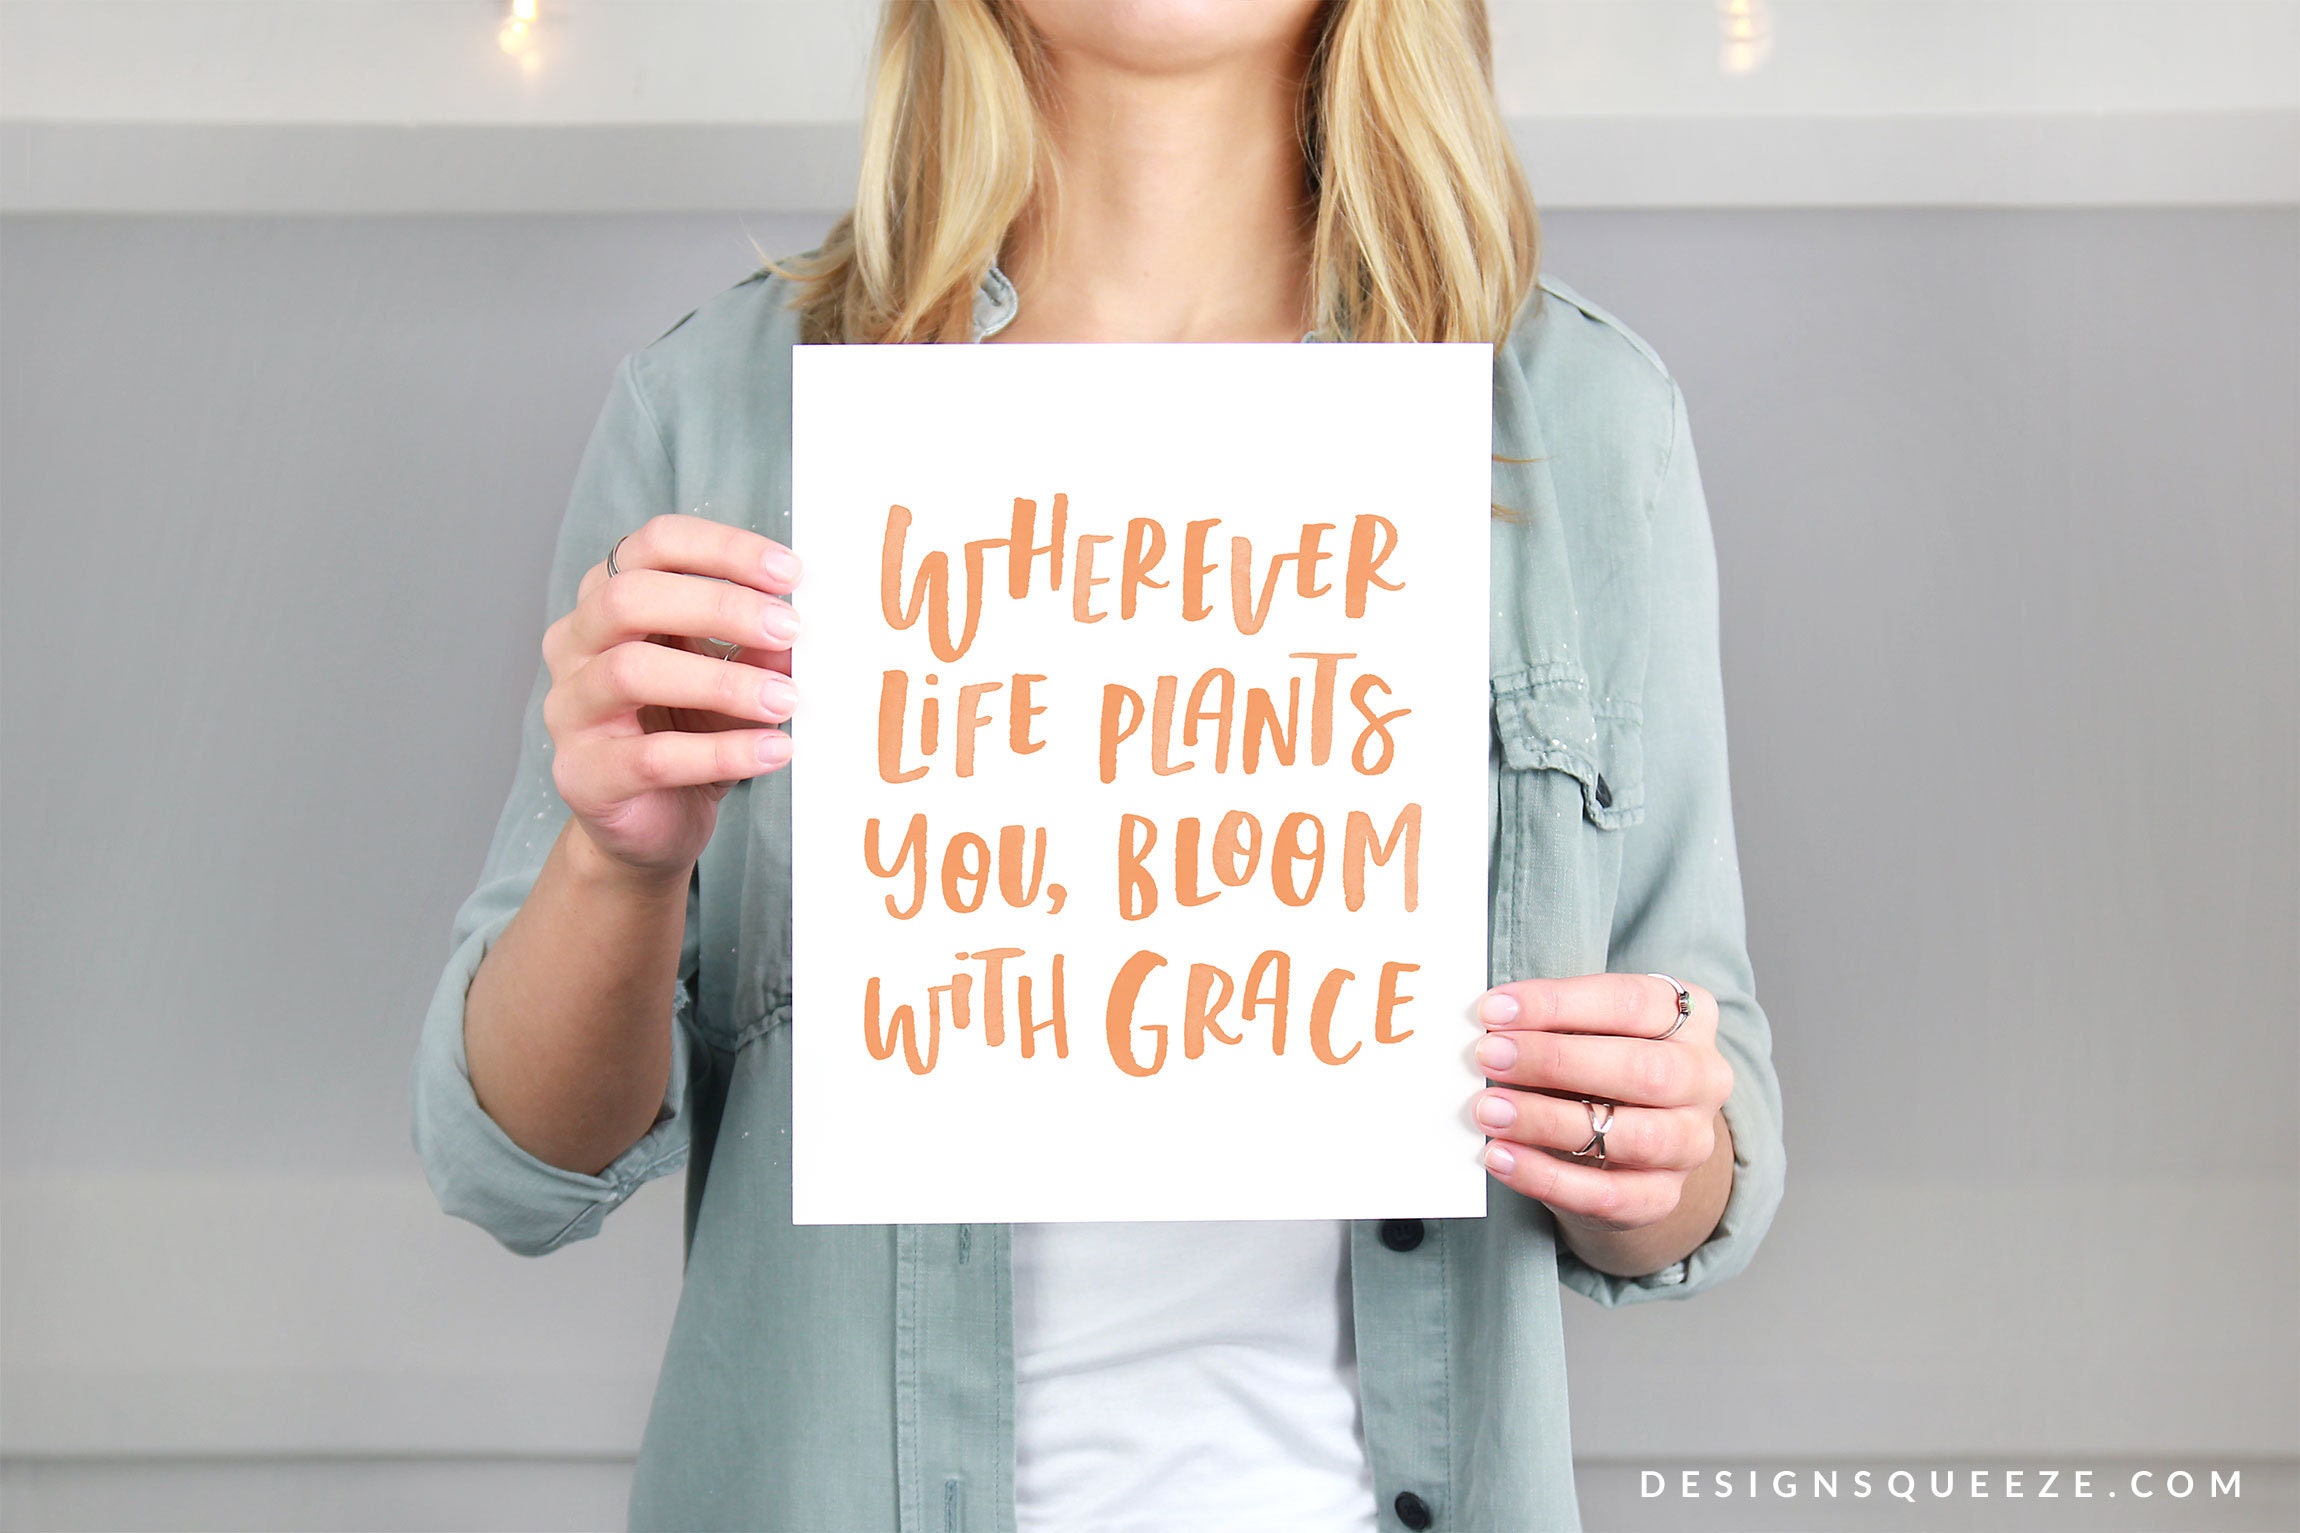 WHEREVER
LiFE PLANTS
YOU, BLOOM
WiTH GRACE
DESIGNSQUEEZE.COM